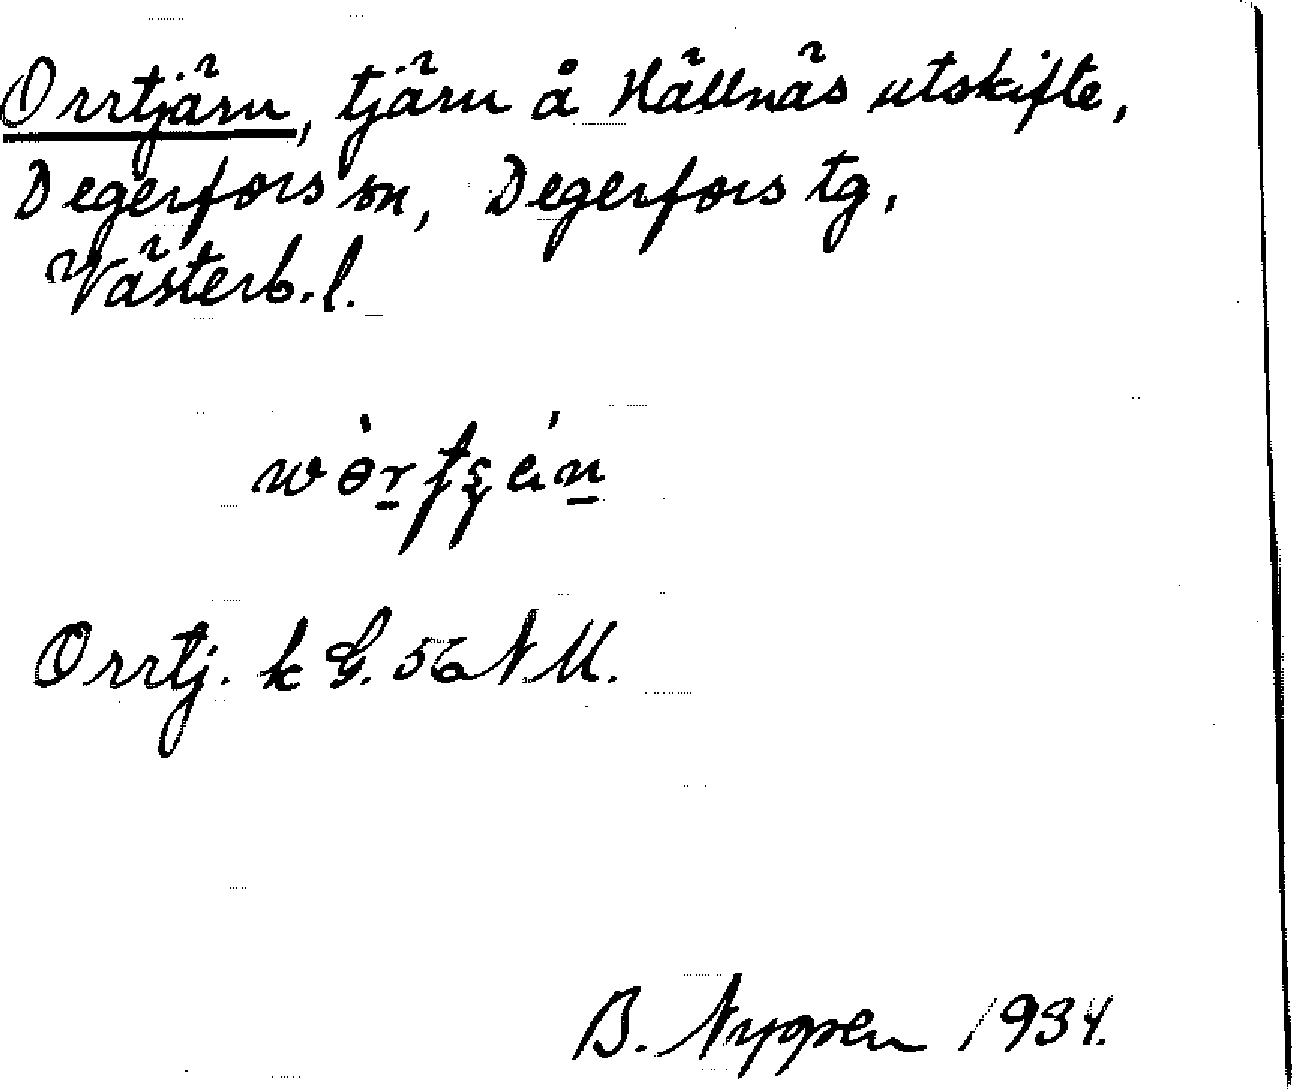 Orrtjärn, tjärn å Hällnäs utskifte,
Degerfors sn, Degerfors tg,
Västerb. l.
Orrtj. k G. 56 N M.
B. Nygren 1934.